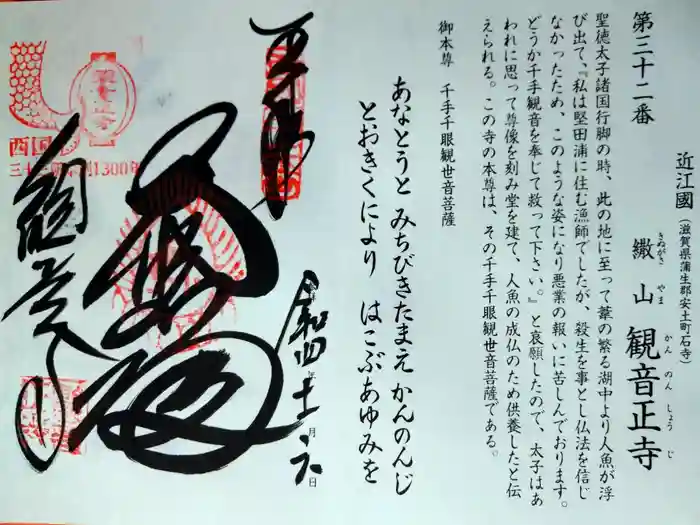 第三十二番
近江國（滋賀県蒲生郡安土町石寺）
繖山 観音正寺
きぬがさ やま かん のん しょう じ
聖徳太子諸国行脚の時、此の地に至って葦の繁る湖中より人魚が浮
び出て、『私は堅田浦に住む漁師でしたが、殺生を事とし仏法を信じ
なかったため、このような姿になり悪業の報いに苦しんでおります。
どうか千手観音を奉じて救って下さい。』と哀願したので、太子はあ
われに思って尊像を刻み堂を建て、人魚の成仏のため供養したと伝
えられる。この寺の本尊は、その千手千眼観世音菩薩である。
御本尊 千手千眼観世音菩薩
あなとうと みちびきたまえ かんのんじ
とおきくにより はこぶあゆみを
令和四年十一月六日
西国
1300年